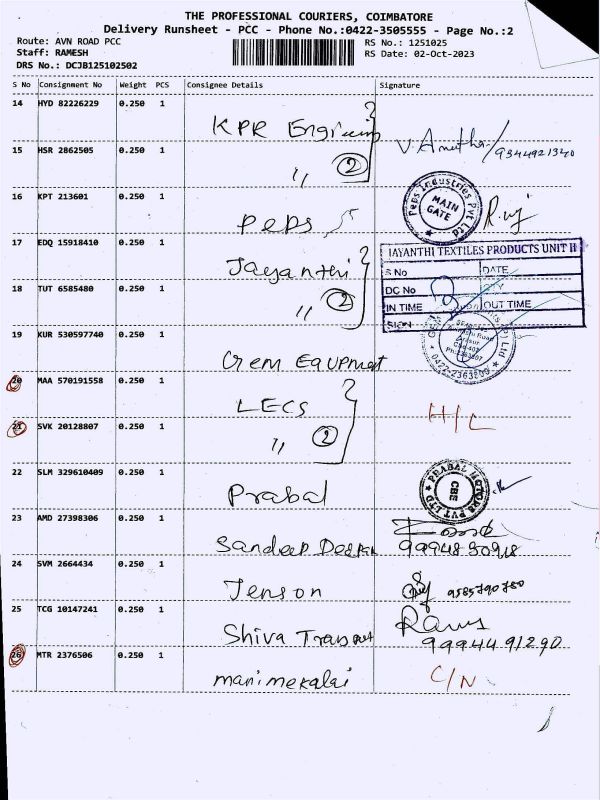 THE PROFESSIONAL COURIERS, COIMBATORE
Delivery Runsheet - PCC - Phone No.:0422-3505555 - Page No.:2
Route: AVN ROAD PCC
RS No.: 1251025
Staff: RAMESH
RS Date: 02-Oct-2023
DRS No.: DCJB125102502
S No Consignment No Weight PCS Consignee Details Signature
14 HYD 82226229 0.250 1
KPR
V. Amutha/9344921340
15 HSR 2862505 0.250 1
" 2
16 KPT 213601 0.250 1
Peps
Peps Industries Pvt Ltd
MAIN GATE
17 EDQ 15918410 0.250 1
Jayanthi
JAYANTHI TEXTILES PRODUCTS UNIT II
S No DATE
DC No QTY
IN TIME OUT TIME
SIGN
18 TUT 6585480 0.250 1
" 2
19 KUR 530597740 0.250 1
Gem Equpment
20 MAA 570191558 0.250 1
LECS
H/L
21 SVK 20128807 0.250 1
" 2
22 SLM 329610409 0.250 1
Prabal
PRABAL MOTORS PVT LTD
CBE
23 AMD 27398306 0.250 1
Sandeep
24 SVM 2664434 0.250 1
Jenson
9585790780
25 TCG 10147241 0.250 1
Shiva
99944 91290
26 MTR 2376506 0.250 1
manimekalai
C/N